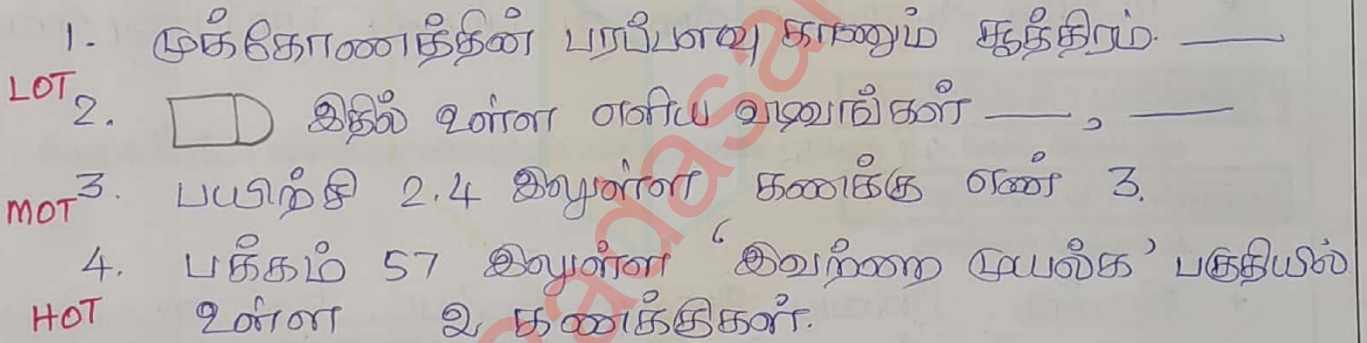 1. முக்கோணத்தின் பரப்பளவு காணும் சூத்திரம். ___
LOT
2. இதில் உள்ள எளிய வடிவங்கள் ___, ___
3. பயிற்சி 2.4 இலுள்ள கணக்கு எண் 3.
MOT
4. பக்கம் 57 இலுள்ள ‘இவற்றை முயல்க’ பகுதியில்
HOT உள்ள 2 கணக்குகள்.
padasa